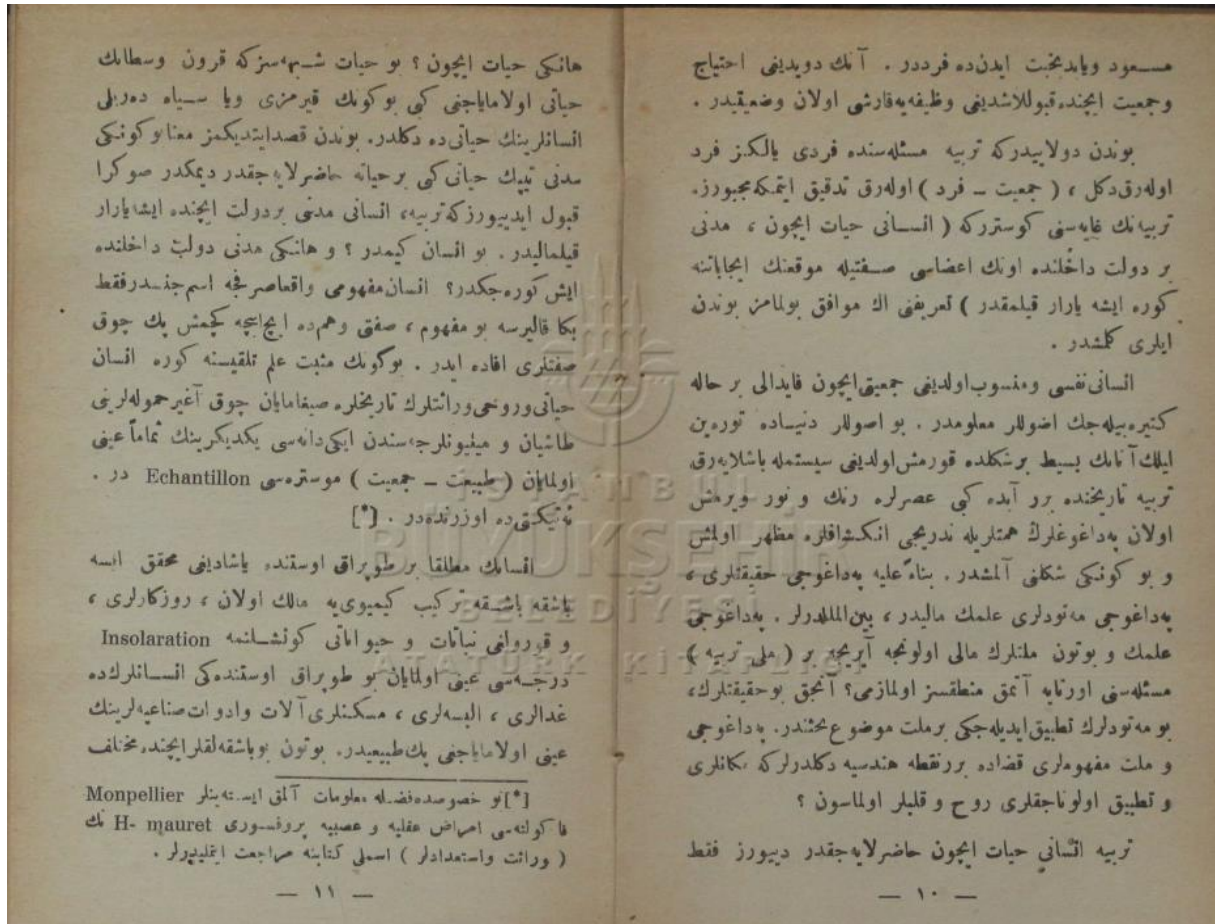 مسعود وياﺑدبخت ايدن‌ده فرددر . آنك دويدينى احتياج
وجمعيت ايچنده قبوللاشدينى وظيفه‌يه‌قارشى اولان وضعيتيدر .
بوندن دولاييدركه تربيه مسئله‌سنده فردى يالكز فرد
اوله‌رق‌دكل ، ( جمعيت ـ فرد ) اوله‌رق تدقيق ايتمكه‌مجبورز.
تربيه‌نك غايه‌سنى كوستررکه ( انسانى حيات ايچون ، مدنى
بر دولت داخلنده اونك اعضاسى صفتيله موقعنك ايجاباتنه
كوره ايشه يارار قيلمقدر ) تعريفنى اك موافق بولمامز بوندن
ايلرى كلمشدر .
انسانى‌نفسى ومنسوب‌اولدينى جمعيتى‌ايچون فايدالى بر حاله
كتيره‌بيله‌جك اصوللر معلومدر . بو اصوللر دنياده توره‌ين
ايلك آنانك بسيط برشكلده قورمش‌اولدينى سيستمله باشلايه‌رق
تربيه تاريخنده برر آبده كبى عصرلره رنك و نور ويرمش
اولان په‌داغوغلرك همتلريله تدريجى انكشافلره مظهر اولمش
و بو كونكى شكلنى آلمشدر . بناءً عليه په‌داغوجى حقيقتلرى ،
په‌داغوجى مه‌تودلرى علمك ماليدر ، بين‌المللدرلر . په‌داغوجى
علمك و بوتون ملتلرك مالى اولونجه آيريجه بر ( ملى تربيه )
مسئله‌سنى اورتايه آتمق منطقسز اولمازمى؟ آنجق بوحقيقتلرك،
بو مه‌تودلرك تطبيق‌ايديله‌جكى برملت موضوع بحثدر. په‌داغوجى
و ملت مفهوملرى قضاده بررنقطه هندسيه دكلدرلركه مكانلرى
و تطبيق اولوناجقلرى روح و قلبلر اولماسون ؟
تربيه انسانى حيات ايچون حاضرلايه‌جقدر دييورز فقط
— ١٠ —
هانكى حيات ايچون ؟ بو حيات شبهه‌سزكه قرون وسطانك
حياتى اولاماياجنى كبى بوكونك قيرمزى ويا سياه ده‌ريلى
انسانلرينك حياتى‌ده دكلدر. بوندن قصدايتديكمز معنا بوكونكى
مدنى تيپك حياتى كبى برحياته حاضرلايه‌جقدر ديمكدر صوكرا
قبول ايدييورزكه تربيه، انسانى مدنى بردولت ايچنده ايشه‌يارار
قيلماليدر . بو انسان كيمدر ؟ و هانكى مدنى دولت داخلنده
ايش كوره‌جكدر؟ انسان‌مفهومى واقعا صرفجه اسم جنسدرفقط
بكا قاليرسه بو مفهوم ، صفتى وهم‌ده ايچ‌ايچه كچمش پك چوق
صفتلرى افاده ايدر . بوكونك مثبت علم تلقيسنه كوره انسان
حياتى‌وروحى‌وراثتلرك تاريخلره صيغامايان چوق آغيرحموله‌لرينى
طاشيان و ميليونلرجه‌سندن ايكى‌دانه‌سى يكديكرينك تماماً عينى
اولمايان ( طبيعت ـ جمعيت ) موستره‌سى Echantillon در .
ته‌تيكتى‌ده اوزرنده‌در . [*]
انسانك مطلقا بر طوپراق اوستنده ياشادينى محقق ايسه
باشقه باشقه تركيب كيميوى‌يه مالك اولان ، روزكارلرى ،
و قورولغى نباتات و حيواناتى كونشلنمه Insolaration
درجه‌سى عينى اولمايان بو طوپراق اوستنده‌كى انسانلرك‌ده
غدالرى ، البسه‌لرى ، مسكنلرى آلات وادوات‌صناعيه‌لرينك
عينى اولاماياجنى پك‌طبيعيدر. بوتون بوباشقه‌لقلر ايچنده مختلف
[*]بو خصوصده‌فضله معلومات آلمق ايسته‌ينلر Monpellier
فاكولته‌سى امراض عقليه و عصبيه پروفسورى H- mauret نك
( وراثت واستعدادلر ) اسملى كتابنه مراجعت ايتمليدرلر .
— ١١ —
İSTANBUL
BÜYÜKŞEHİR
BELEDİYESİ
ATATÜRK KİTAPLIĞI